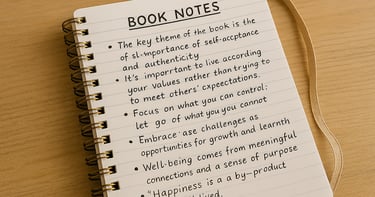 BOOK NOTES
• The key theme of the book is the
of sl-mportance of self-accptance
and authenticity
• It's important to live according
your values rather than trying to
to meet others' expectations.
• Focus on what you can control:
let go of what you you cannot
• Embrace· ase challenges as
opportunities for growth and learnth
• Well-being comes from meaningful
connections and a sense of purpose
• "Happiness is a a by-product
lived.